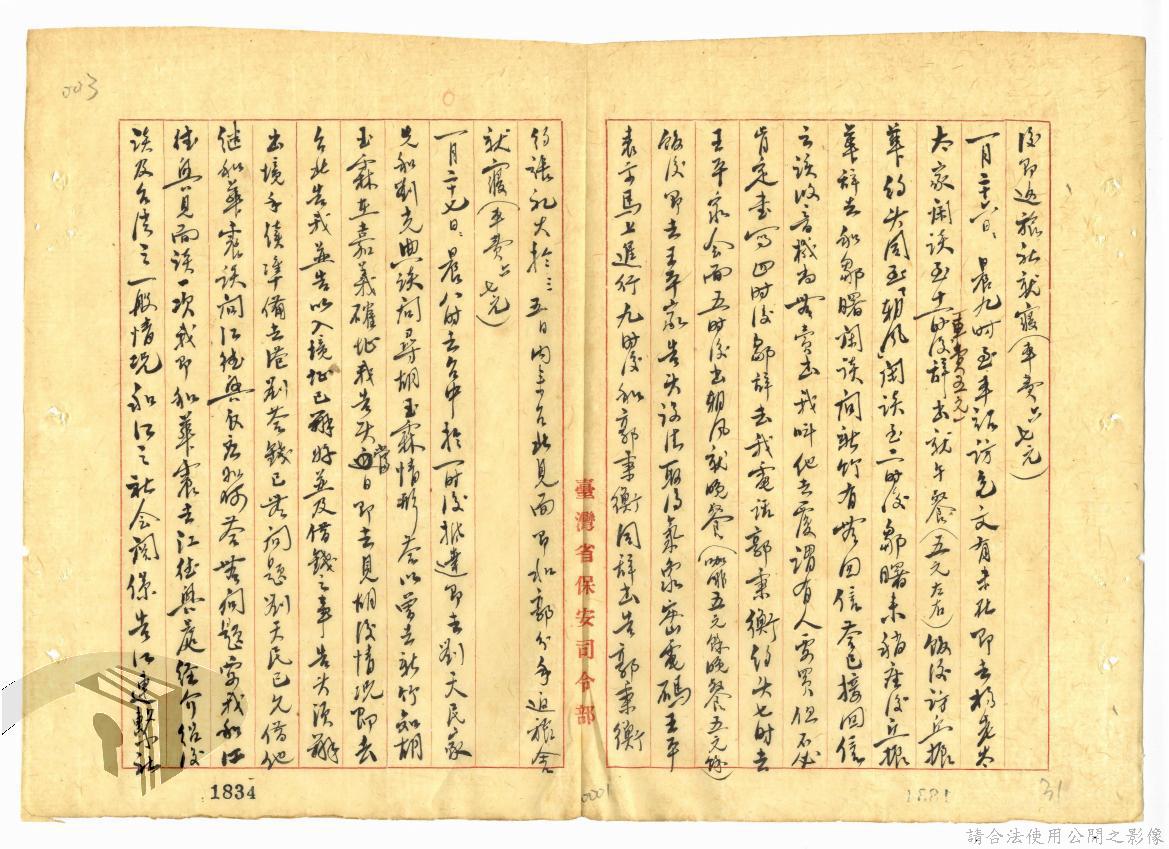 003
後即返旅社就寢(車費六、七元)
一月二十六日、晨九時至車站訪克文有未北即去楊老太
太家閑談至十一時後辭出就午餐(五元左右)飯後訪丘振
車費五元)
華約其同至「朝風」閑談至二時後鄒曙來稍座後丘振
華辭去和鄒曙閑談問新竹有無回信答已接回信
云該收音機尚無賣出我叫他去覆謂有人要買但不必
肯定書寫四時後鄒辭去我電話郭秉衡約其七時去
王平家會面五時後出朝風就晚餐(咖啡五元餘晚餐五元餘)
飯後即去王平家告其設法取得氣象密電碼王平
表示馬上進行九時後和郭秉衡同辭出告郭秉衡
約張礼大於三、五日內來台北見面即和郭分手返旅舍
就寢(車費六、七元)
一月二十七日、晨八時去台中於一時後抵達即去劉天民家
先和劉克典談問尋胡玉霖情形答以曾去新竹知胡
玉霖在嘉義確址我告其當日即去見胡後情況即去
台北告我並告以入境証已辦好並及借錢之事告其須辦
出境手續準備去港劉答錢已無問題劉天民已允借他
繼和華震談問江德興反应如何答無問題要我和江
德興見面談一次我即和華震去江德興處經介紹後
談及台湾之一般情況和江之社会関係告江速擊社
臺灣省保安司令部
1834
0001
1881
31
請合法使用公開之影像